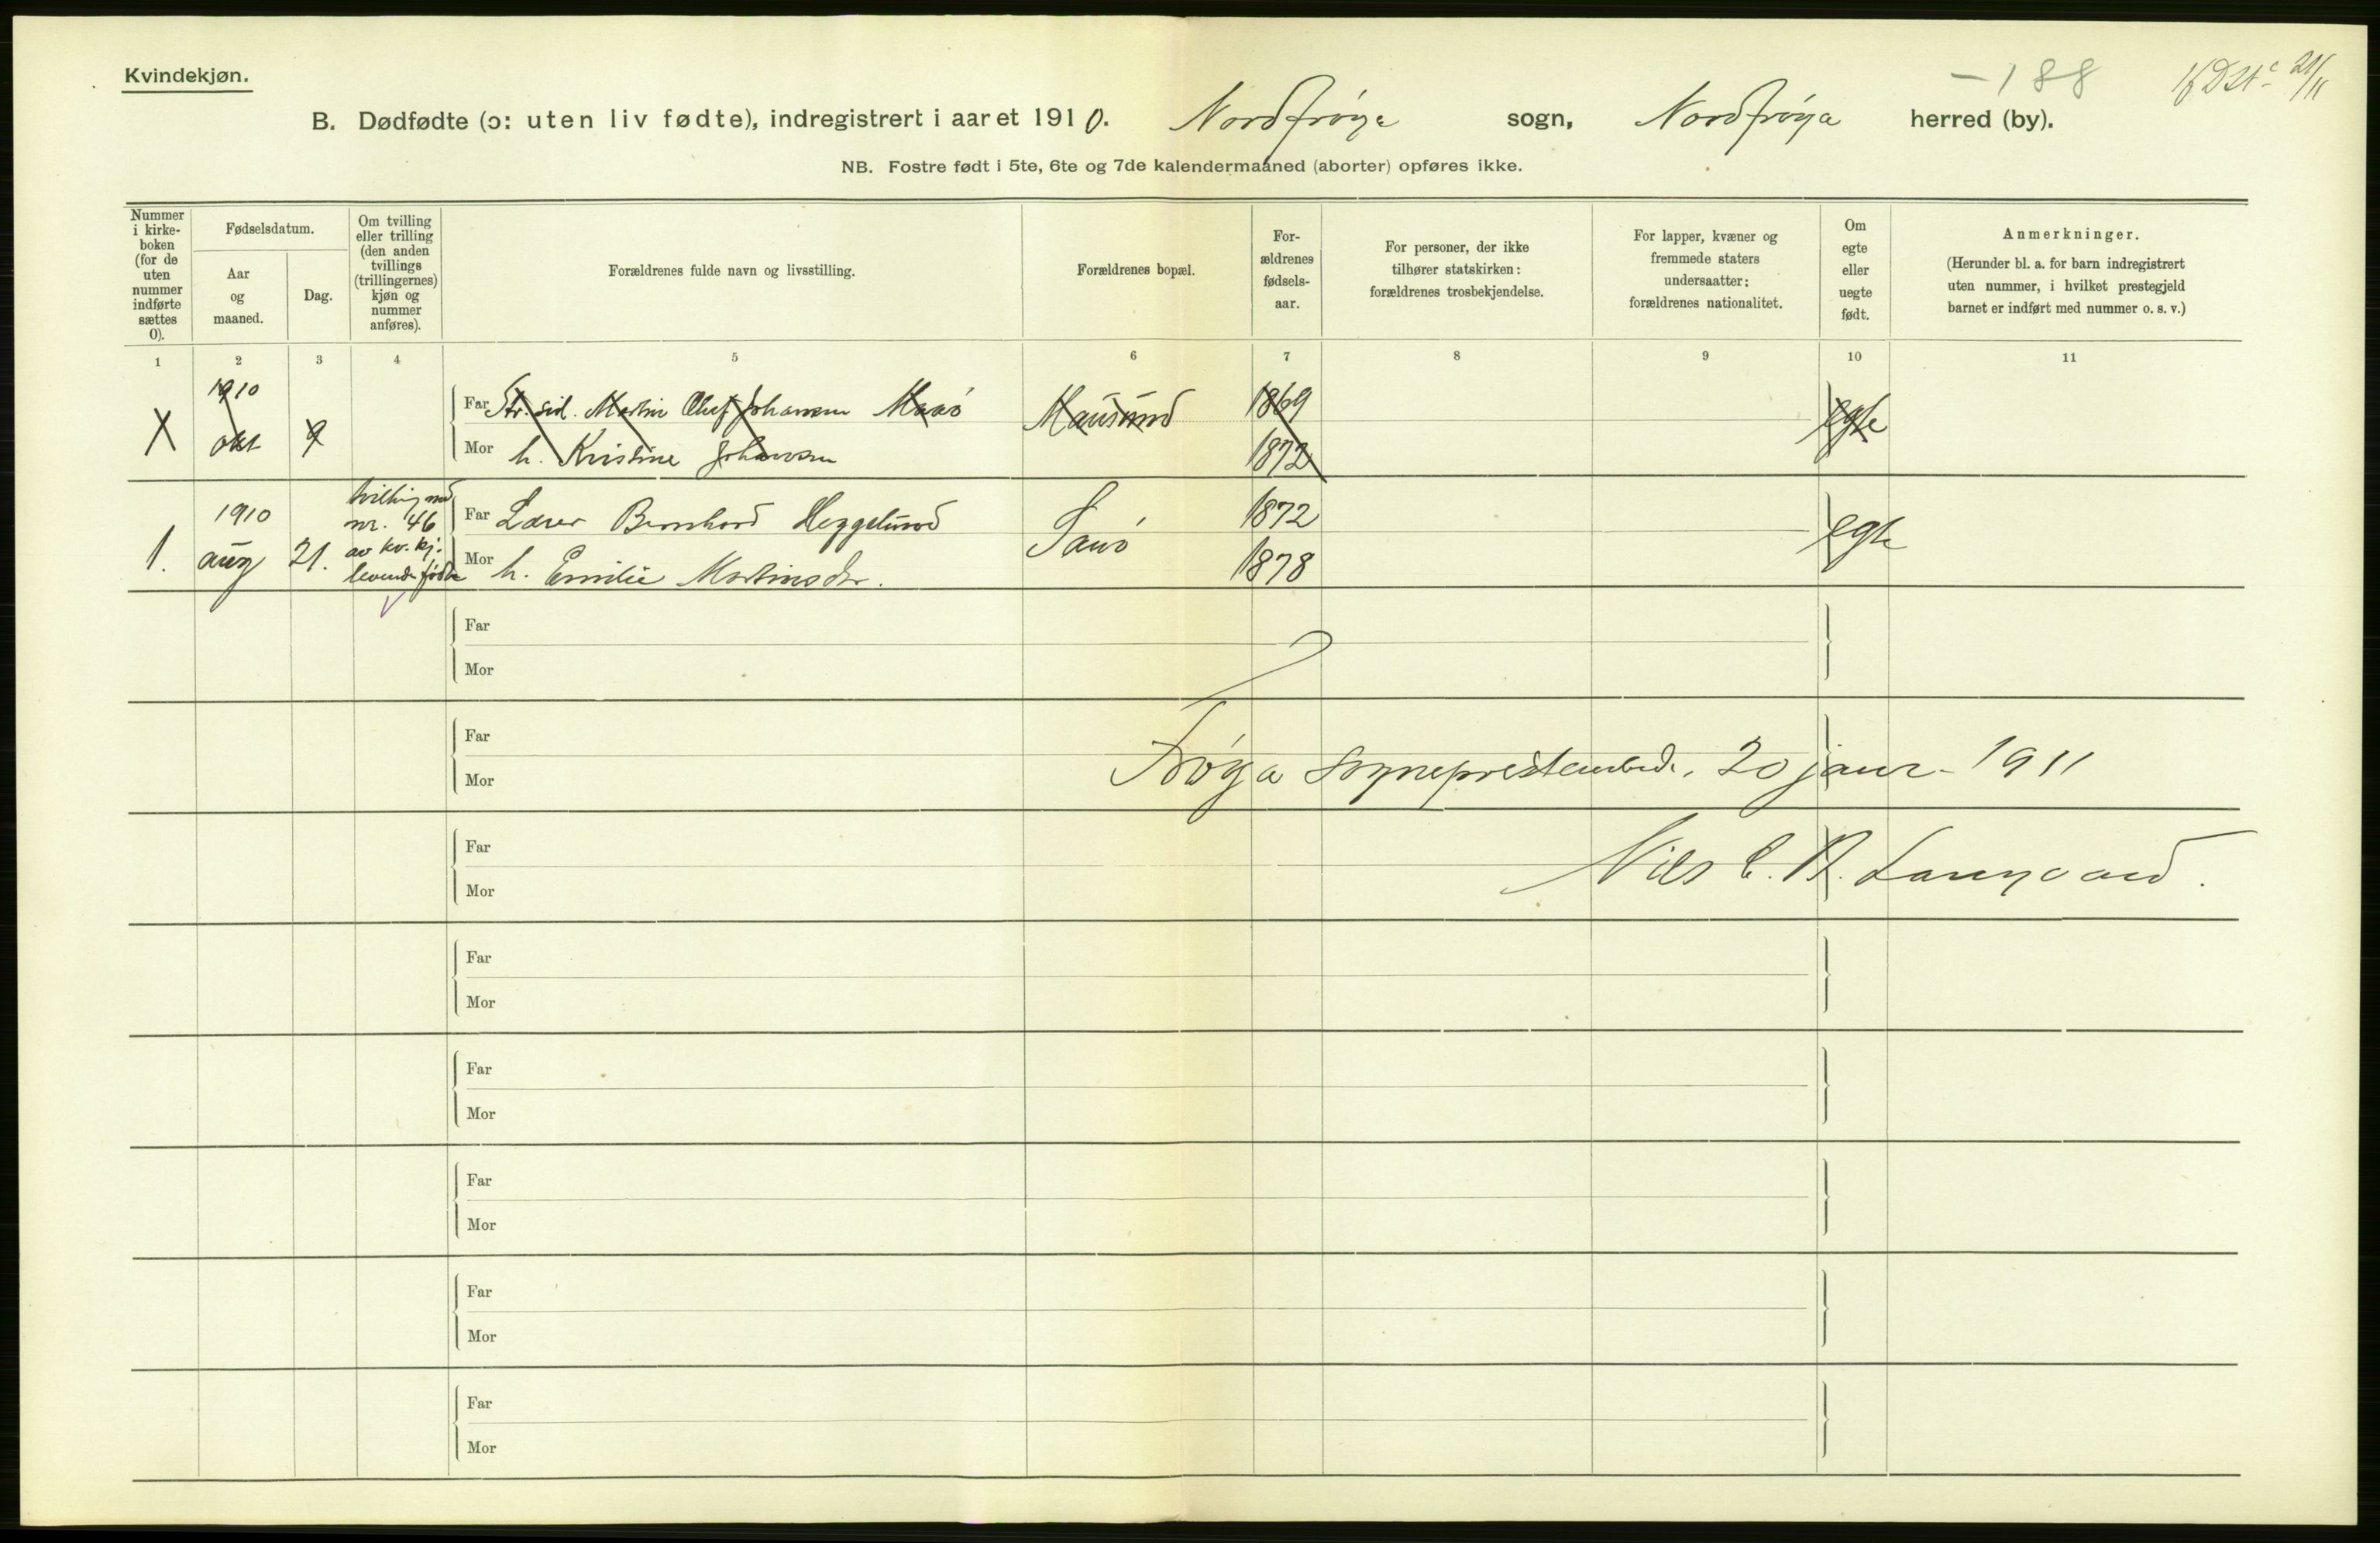 Kvindekjøn.
-188
B. Dødfødte (ɔ: uten liv fødte), indregistrert i aaret 1910. Nordfrøya sogn, Nordfrøya herred (by).
NB. Fostre født i 5te, 6te og 7de kalendermaaned (aborter) opføres ikke.
Nummer
i kirke-
boken
(for de
uten
nummer
indførte
sættes
0).
Fødselsdatum.
Aar
og
maaned.
Dag.
Om tvilling
eller trilling
(den anden
tvillings
(trillingernes)
kjøn og
nummer
anføres).
Forældrenes fulde navn og livsstilling.
Forældrenes bopæl.
For-
ældrenes
fødsels-
aar.
For personer, der ikke
tilhører statskirken:
forældrenes trosbekjendelse.
For lapper, kvæner og
fremmede staters
undersaatter:
forældrenes nationalitet.
Om
egte
eller
uegte
født.
Anmerkninger.
(Herunder bl. a. for barn indregistrert
uten nummer, i hvilket prestegjeld
barnet er indført med nummer o. s. v.)
1 2 3 4 5 6 7 8 9 10 11
X
1910
okt
9
Far Str. sid. Martin Oluf Johansen Maaö
Mor h. Kristine Johansen
Mausund
1869
1872
egte
1.
1910
aug
21.
tvilling med
nr. 46
av kv. kj.
levende fødte
Far Lærer Bernhard Heggelund
Mor h. Emilie Martinsdr.
Sauö
1872
1878
egte
Far
Mor
Far
Mor
Frøya sogneprestembede, 20 januar 1911
Far
Mor
Nils C. B.
Far
Mor
Far
Mor
Far
Mor
Far
Mor
Far
Mor